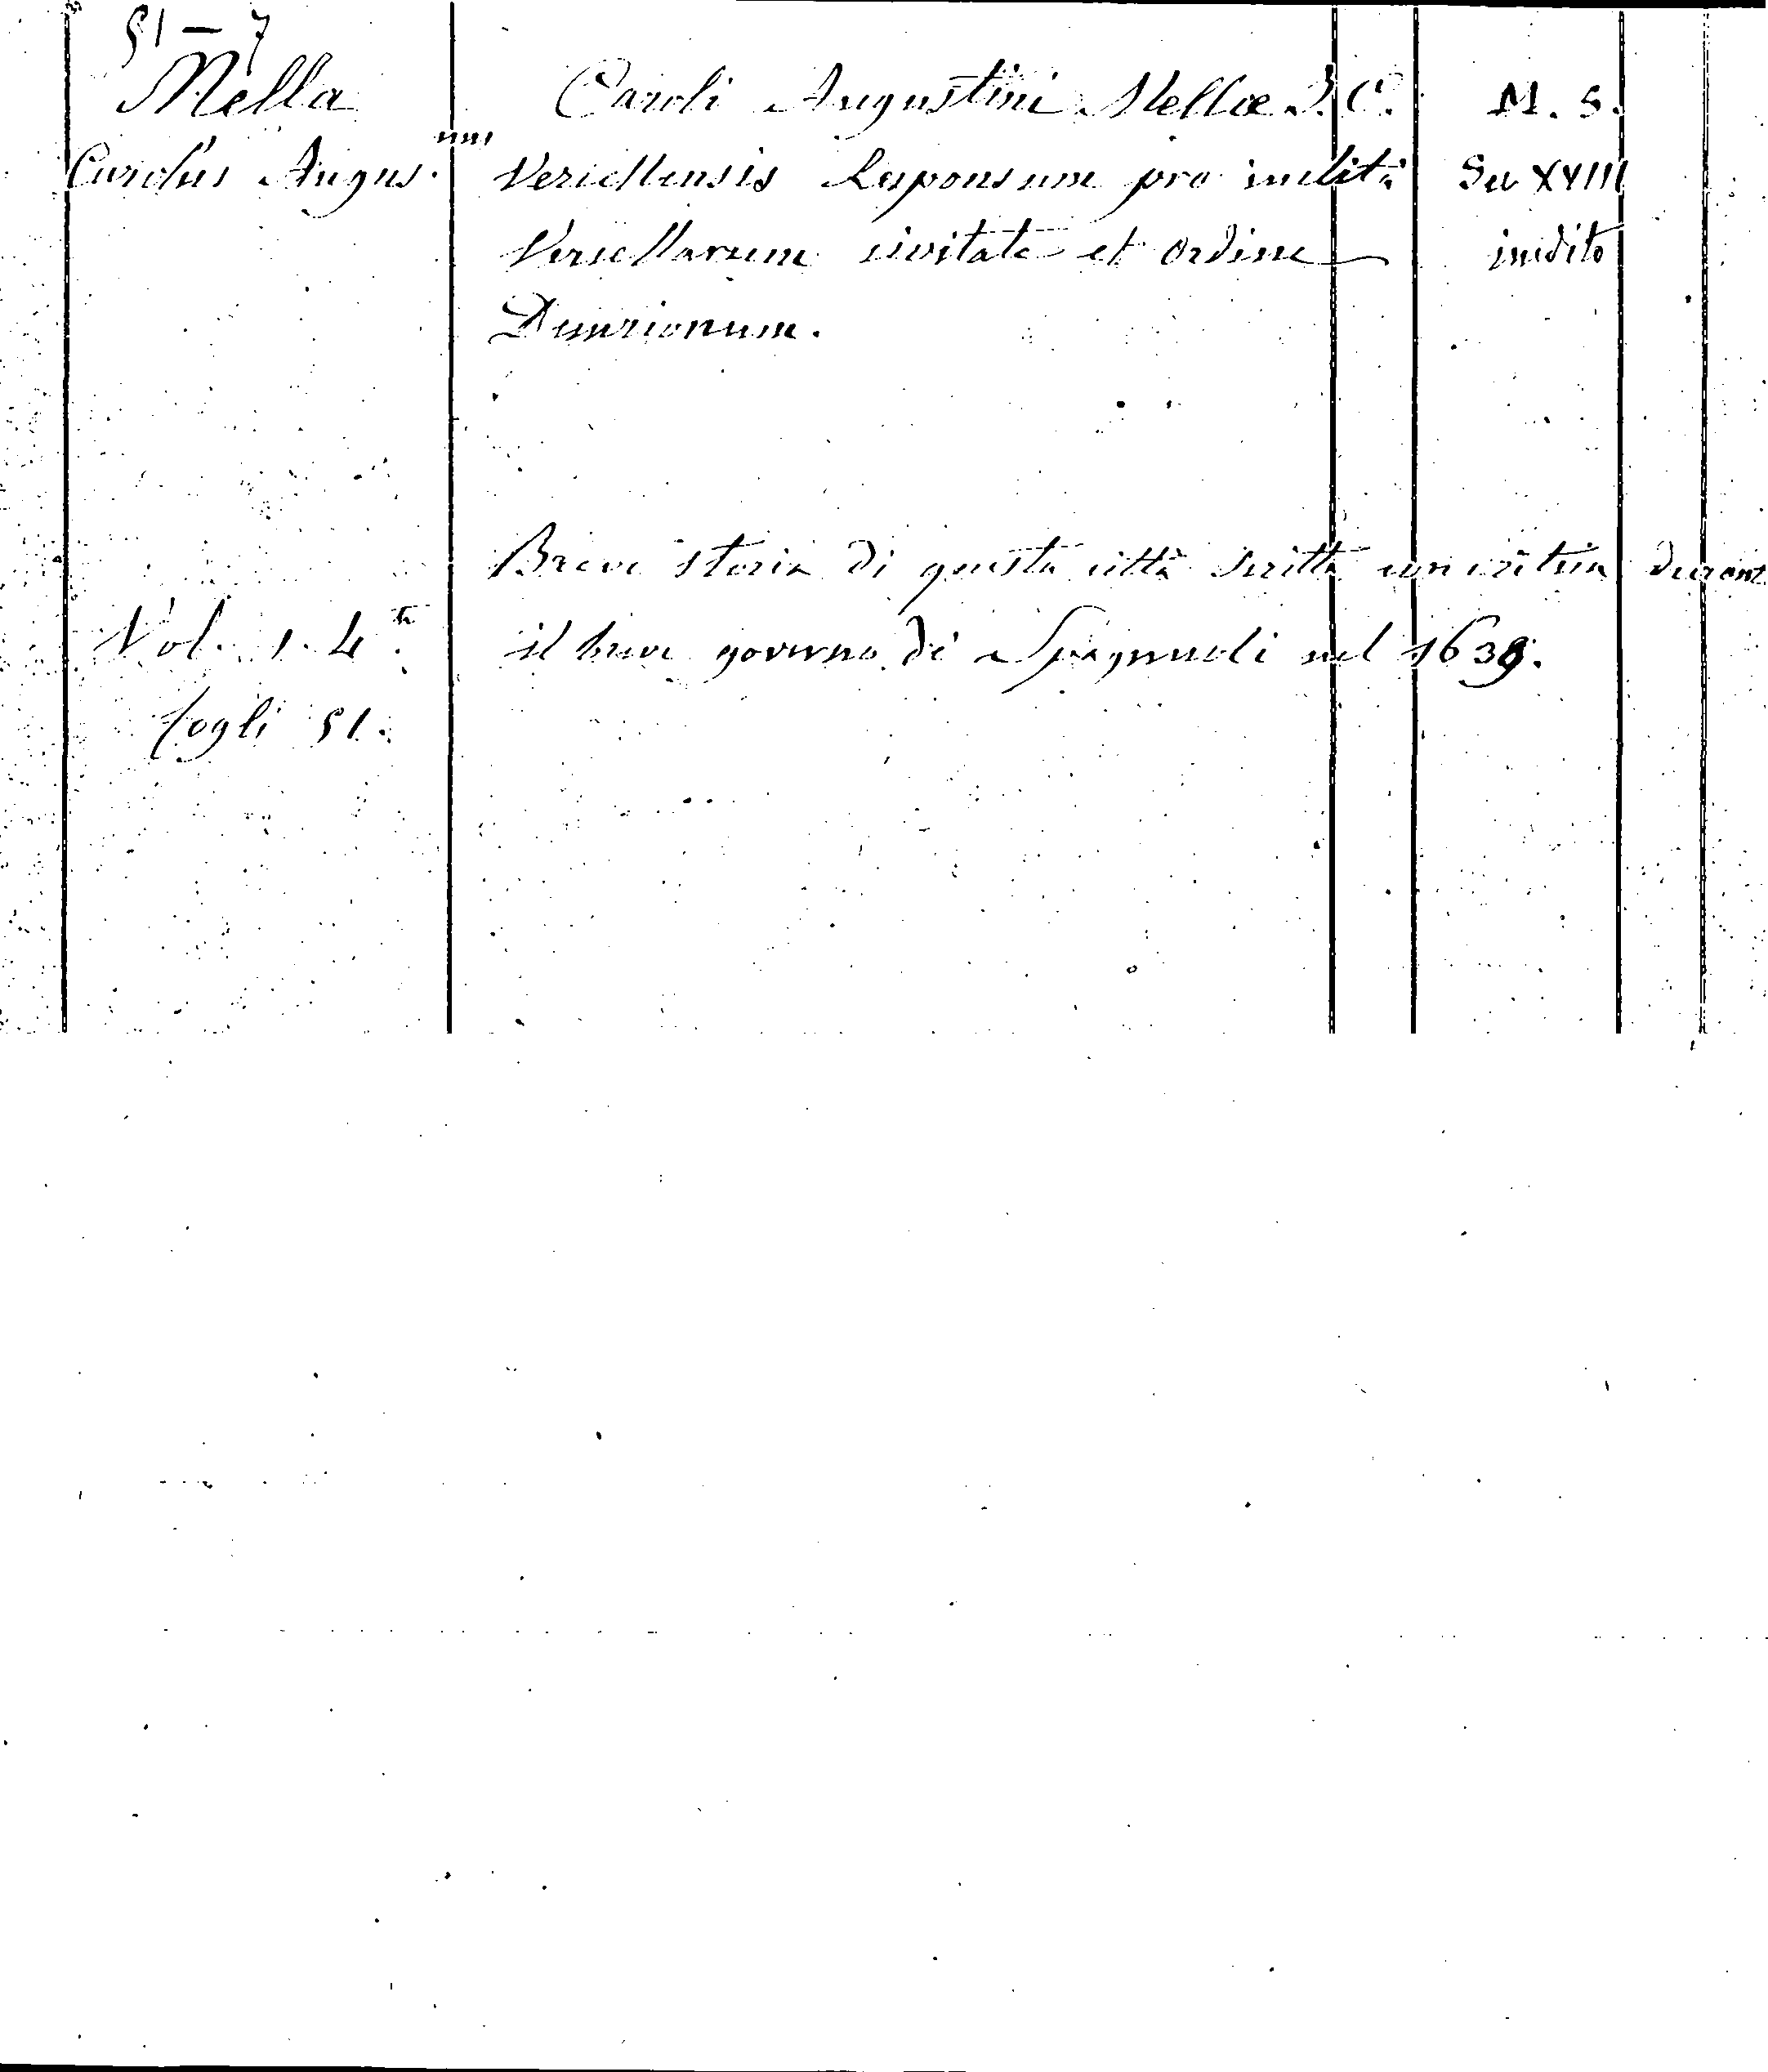 51 – 7
Mella
Carolus Augus.nus
Caroli Augustini Mellæ J. C.
Vercellensis Responsum pro inclita
Vercellarum civitate et ordine
Decurionum.
M. S.
Sec XVIII
inedito
Vol. 1. 4.to
fogli 51.
Breve storia di questa città scritta con critica durant
il breve governo di Spagnuoli nel 1638.